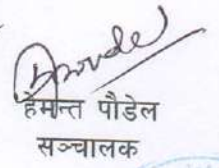 हेमन्त पौडेल
सञ्चालक